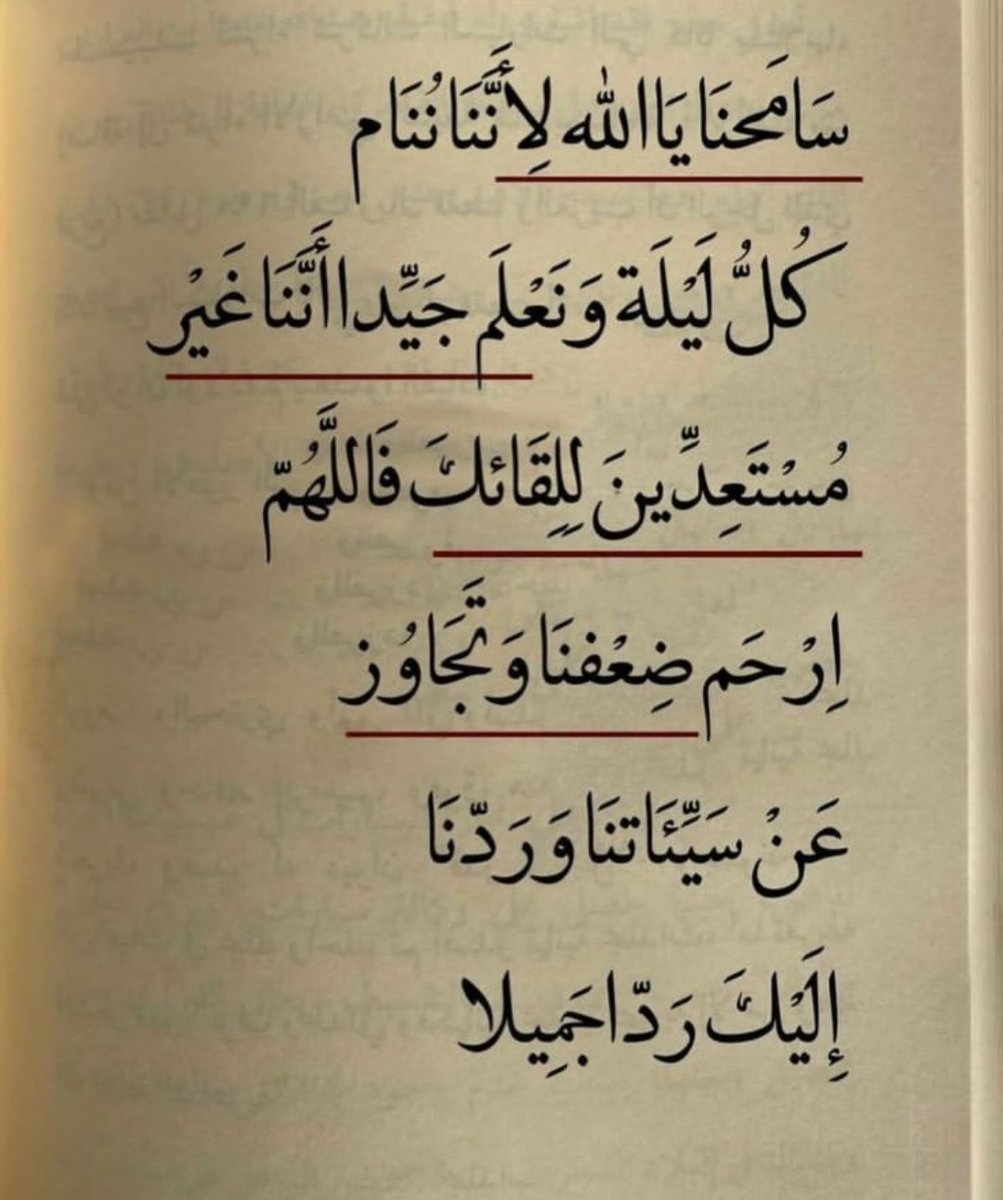 سَامَحنَا يَا الله لِأَنَّنَا نُنَام
كُلُّ لَيْلَة وَنَعْلَم جَيِّدا أَنَّنَا غَيْر
مُسْتَعِدِّينَ لِلِقَائكَ فَاللَّهُمّ
اِرْحَم ضِعْفنَا وَتَّجَاوُز
عَنْ سَيِّئَاتنَا وَرَدّنَا
إِلَيْكَ رَدّا جَمِيلا